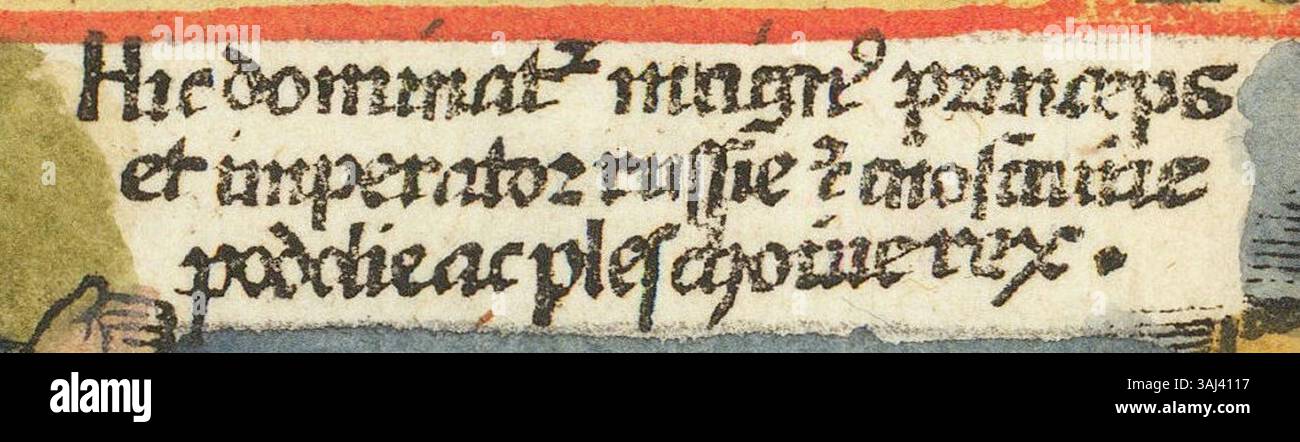 Hic dominatꝛ magnꝰ princeps
et imperator russie ⁊ moscuuie
podolie ac pleschouie rex .
alamy
Image ID: 3AJ4117
www.alamy.com